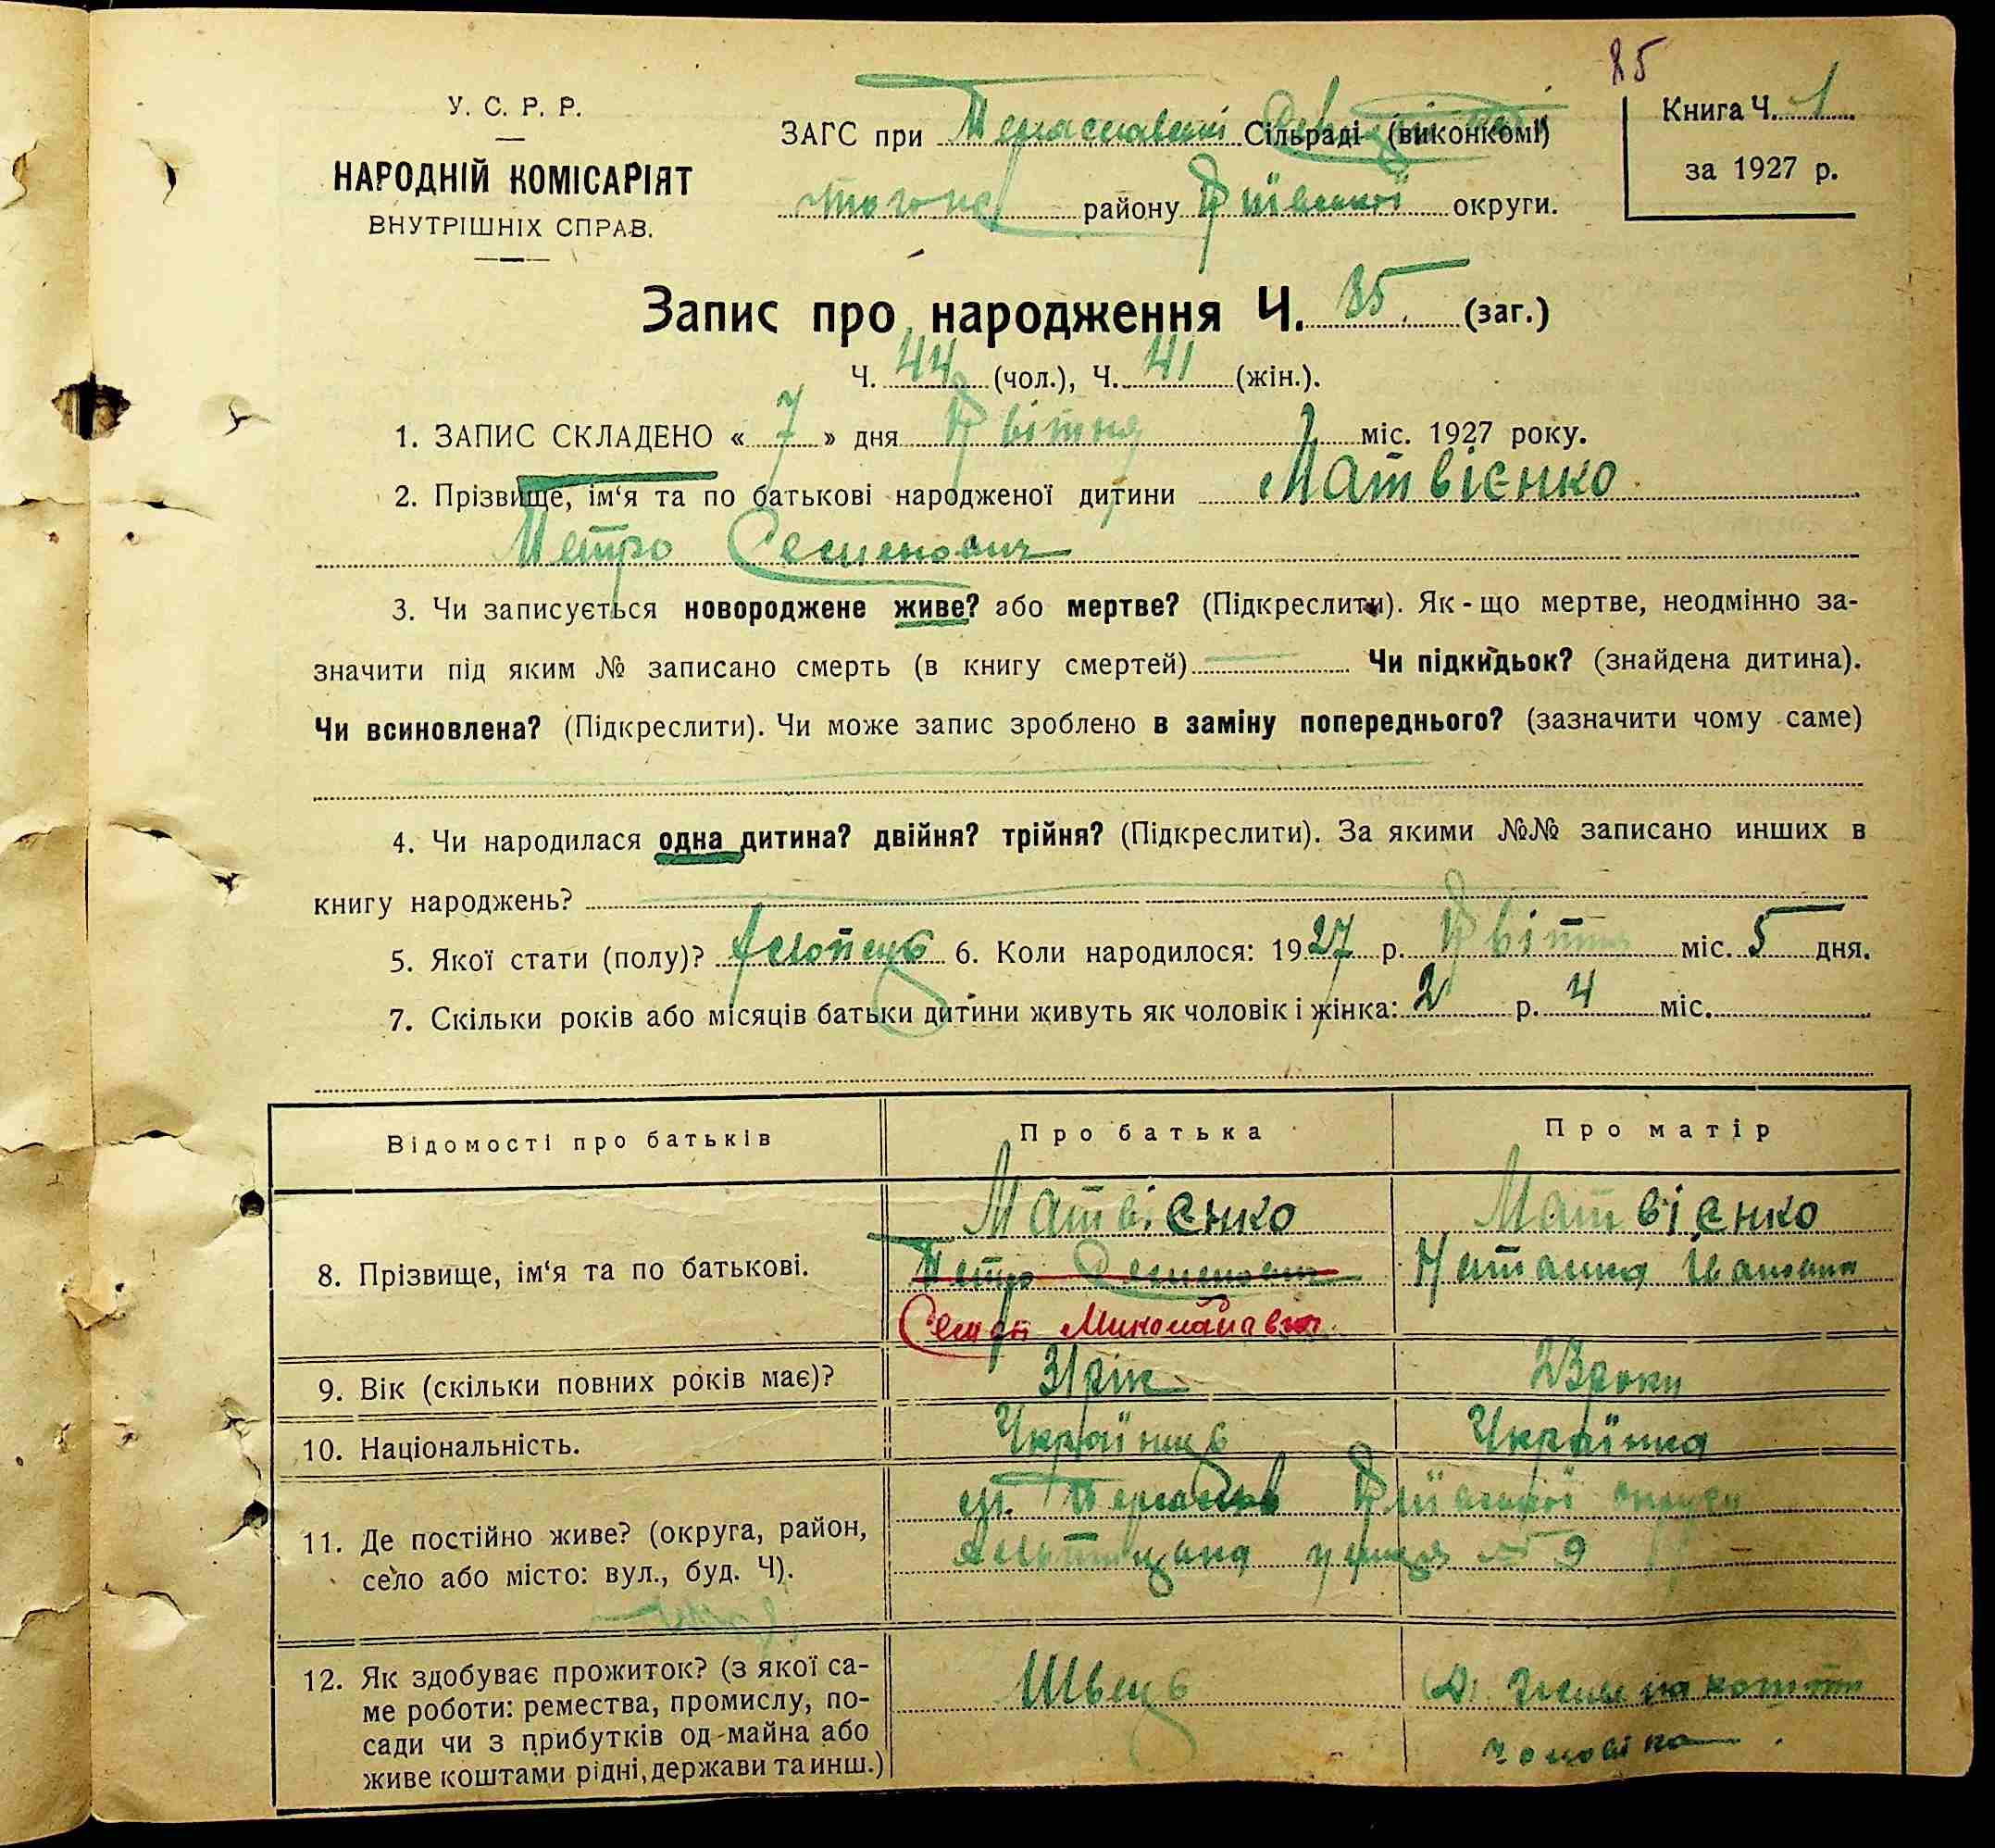 85
У. С. Р. Р.
НАРОДНІЙ КОМІСАРІЯТ
ВНУТРІШНІХ СПРАВ.
ЗАГС при Переяславській Сільраді (виконкомі)
того ж району Київської округи.
Книга Ч. 1
за 1927 р.
Запис про народження Ч. 85. (заг.)
Ч. 44 (чол.), Ч. 41 (жін.).
1. ЗАПИС СКЛАДЕНО « 7 » дня Квітня міс. 1927 року.
2. Прізвище, ім‘я та по батькові народженої дитини Матвієнко
Петро Семенович
3. Чи записується новороджене живе? або мертве? (Підкреслити). Як-що мертве, неодмінно за-
значити під яким № записано смерть (в книгу смертей) Чи підкидьок? (знайдена дитина).
Чи всиновлена? (Підкреслити). Чи може запис зроблено в заміну попереднього? (зазначити чому саме)
4. Чи народилася одна дитина? двійня? трійня? (Підкреслити). За якими №№ записано инших в
книгу народжень?
5. Якої стати (полу)? Хлопець 6. Коли народилося: 1927 р. Квітня міс. 5 дня.
7. Скільки років або місяців батьки дитини живуть як чоловік і жінка: 2 р. 4 міс.
Відомості про батьків Про батька Про матір
8. Прізвище, ім‘я та по батькові.
Матвієнко Матвієнко
Петро Семенович Наталка Іванівна
Семен Миколайович
9. Вік (скільки повних років має)? 31 рік 23 роки
10. Національність. Українець Українка
11. Де постійно живе? (округа, район,
село або місто: вул., буд. Ч).
м. Переяслав Київської округи
вулиця № 9
12. Як здобуває прожиток? (з якої са-
ме роботи: ремества, промислу, по-
сади чи з прибутків од майна або
живе коштами рідні, держави та инш.)
Швець живе на кошти
чоловіка